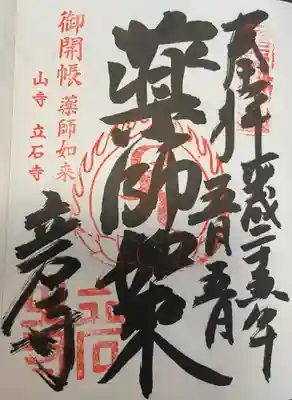 奉拝 平成二十五年
五月五日
薬師如来
立石寺
御開帳 薬師如来
山寺 立石寺